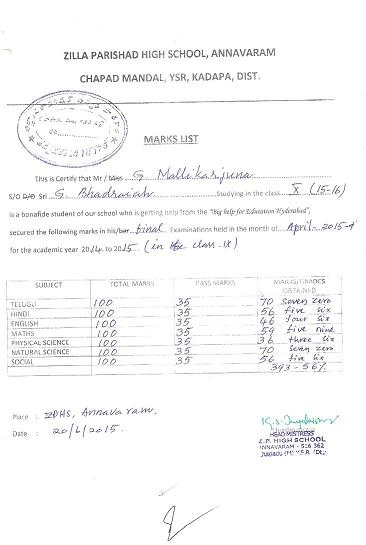 ZILLA PARISHAD HIGH SCHOOL, ANNAVARAM
CHAPAD MANDAL, YSR, KADAPA, DIST.
MARKS LIST
This is Certify that Mr / Miss G. Mallikarjuna
S/O D/O Sri G. Bhadraiah Studying in the class X (15-16)
is a bonafide student of our school who is getting help from the "Big help for Education Hyderabad",
secured the following marks in his/her final Examinations held in the month of April - 2015
for the academic year 2014 to 2015 (in the class IX)
SUBJECT TOTAL MARKS PASS MARKS MARKS/GRADES OBTAINED
TELUGU 100 35 70 seven zero
HINDI 100 35 56 five six
ENGLISH 100 35 46 four six
MATHS 100 35 59 five nine
PHYSICAL SCIENCE 100 35 36 three six
NATURAL SCIENCE 100 35 70 seven zero
SOCIAL 100 35 56 five six
393 - 56%
Place : ZPHS, Annavaram.
Date : 20/6/2015.
HEAD MISTRESS
Z.P. HIGH SCHOOL
ANNAVARAM - 516 362